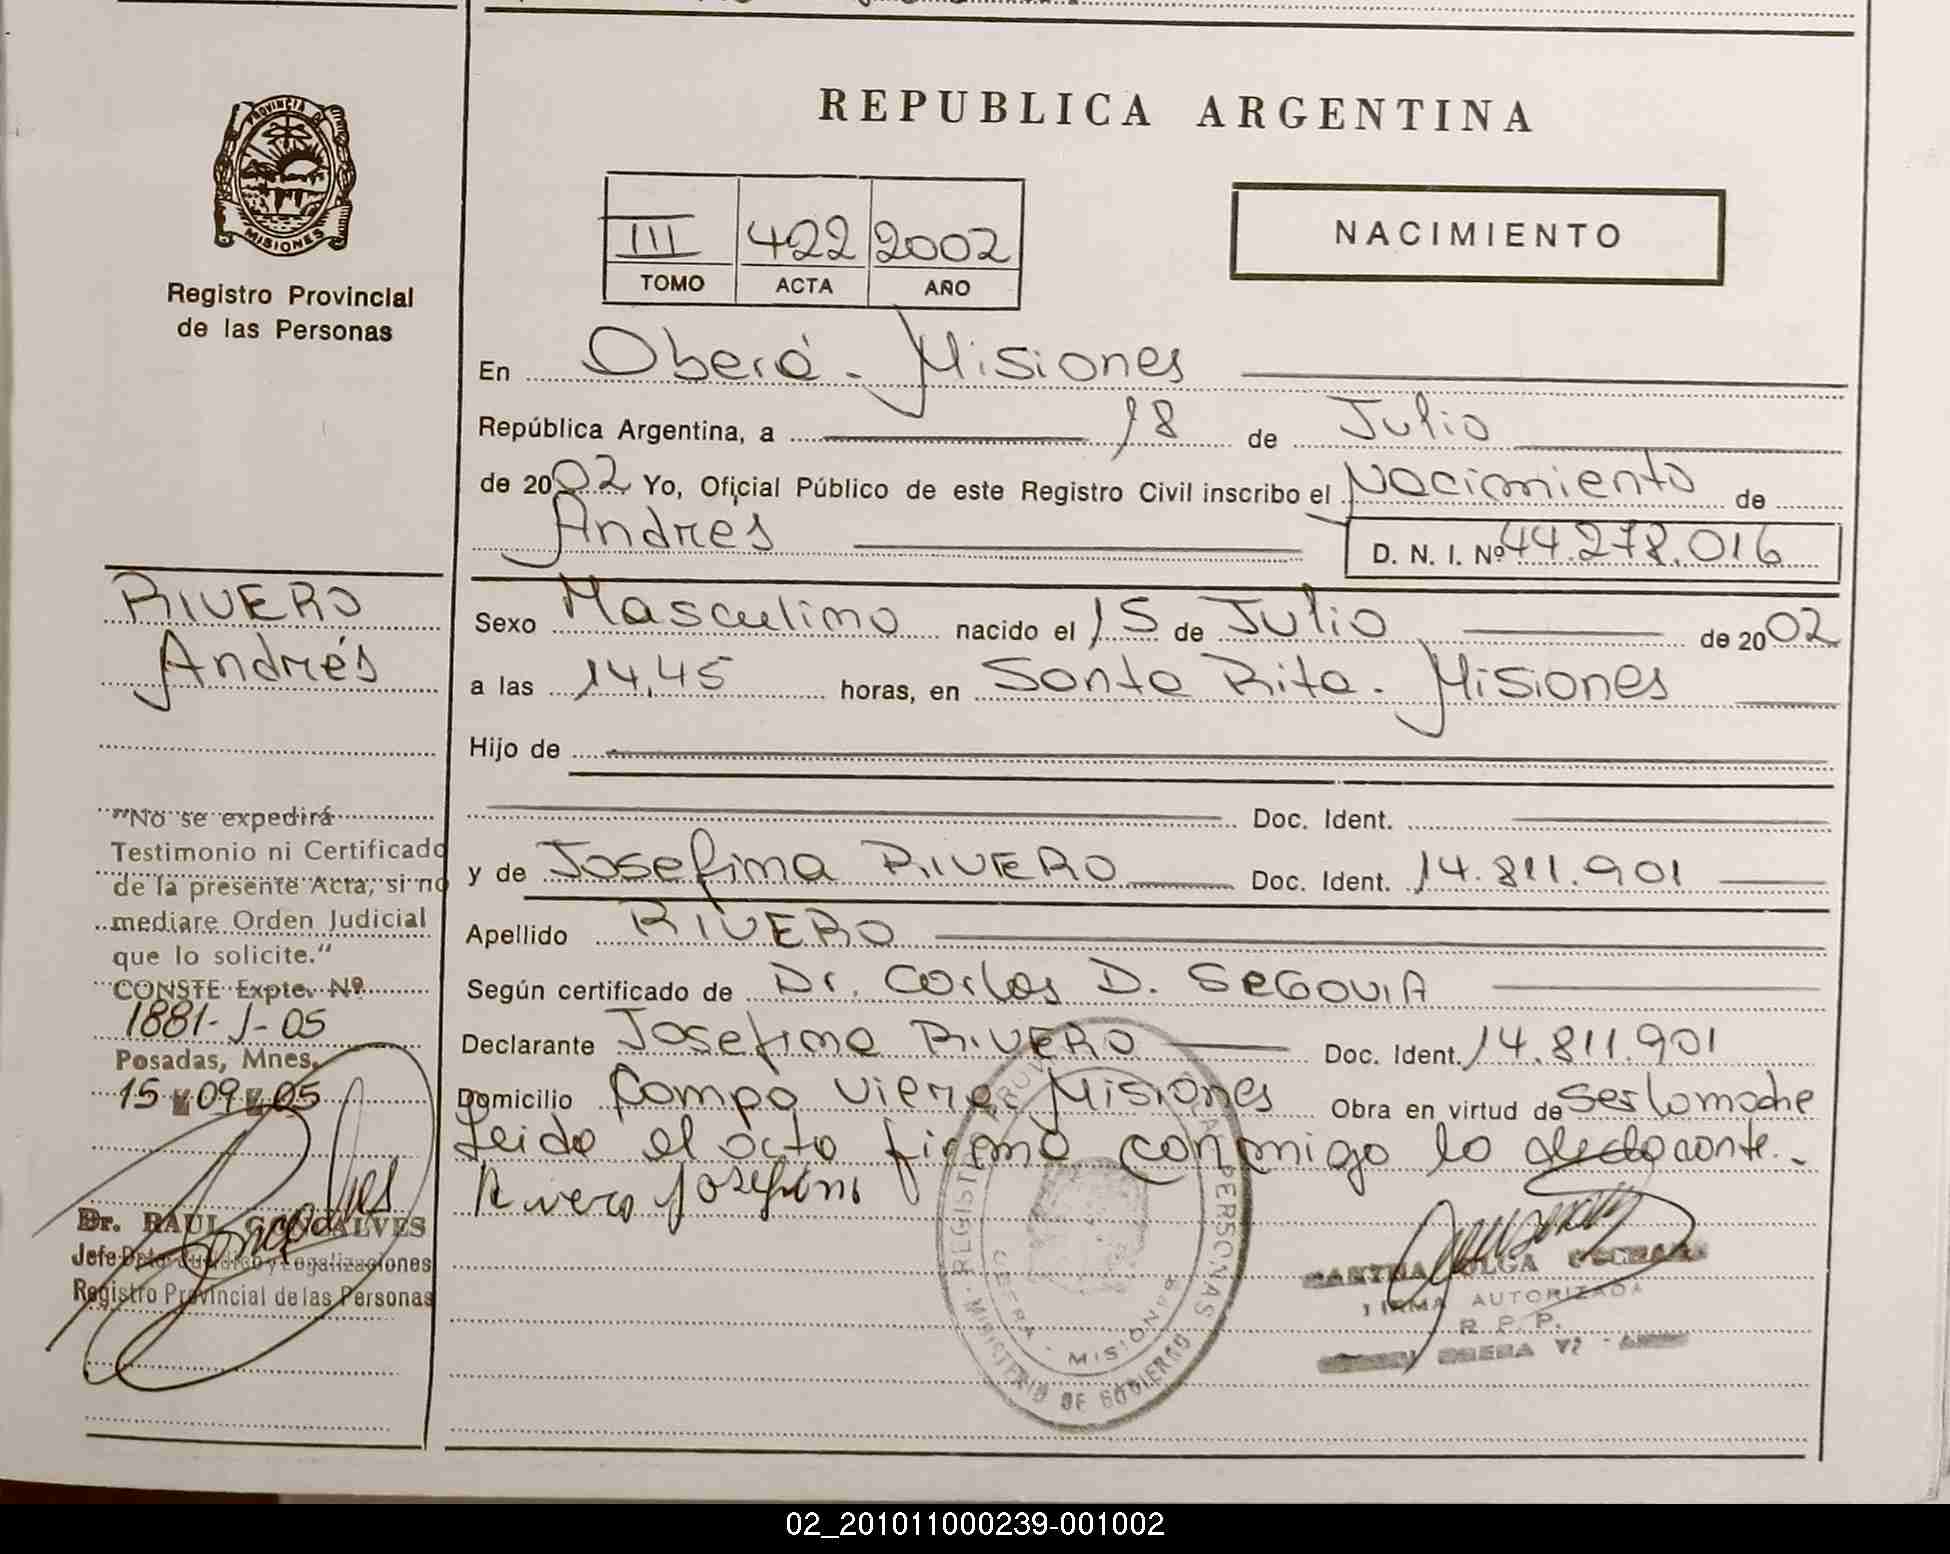 PROVINCIA DE
MISIONES
Registro Provincial
de las Personas
RIVERO
Andrés
"No se expedirá
Testimonio ni Certificado
de la presente Acta, si no
mediare Orden Judicial
que lo solicite."
CONSTE Expte. Nº
1881-J-05
Posadas, Mnes.
15 09 05
Dr. RAUL GONCALVES
Jefe Dpto. Jurídico y Legalizaciones
Registro Provincial de las Personas
REPUBLICA ARGENTINA
III 422 2002
TOMO ACTA AÑO
NACIMIENTO
En Oberá - Misiones
República Argentina, a 18 de Julio
de 2002 Yo, Oficial Público de este Registro Civil inscribo el Nacimiento de
Andres D. N. I. Nº 44.278.016
Sexo Masculino nacido el 15 de Julio de 2002
a las 14,45 horas, en Santa Rita - Misiones
Hijo de
Doc. Ident.
y de Josefina RIVERO Doc. Ident. 14.811.901
Apellido RIVERO
Según certificado de Dr. Carlos D. SEGOVIA
Declarante Josefina RIVERO Doc. Ident. 14.811.901
Domicilio Campo Viera Misiones Obra en virtud de Ser la madre
Leida el acta firma conmigo la declarante.-
Rivero Josefina
PERSONAS
MISIONES
MINISTERIO DE GOBIERNO
OLGA
FIRMA AUTORIZADA
R. P. P.
02_201011000239-001002